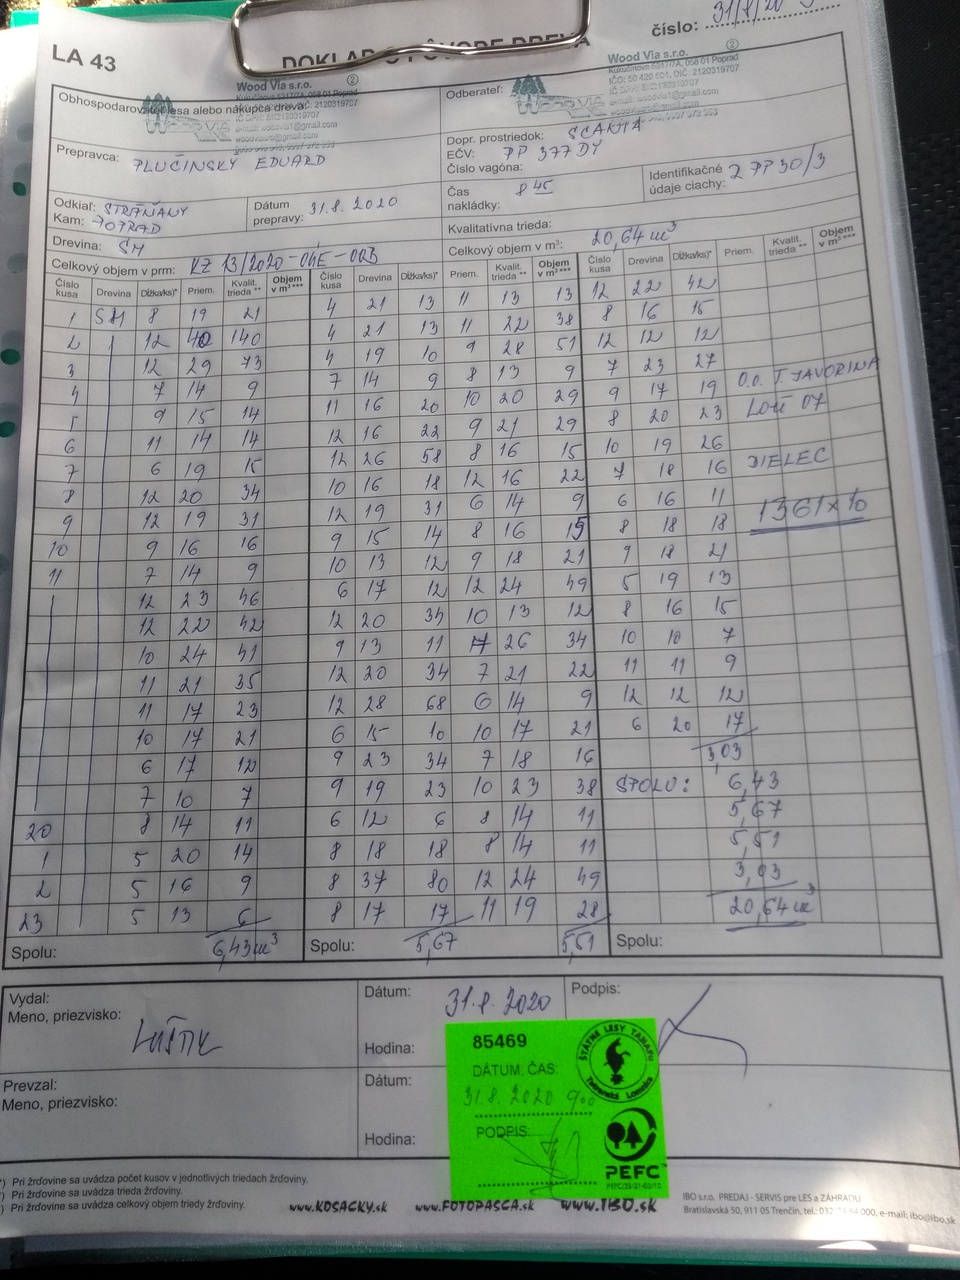 LA 43
číslo: 31/8/20
Wood Via s.r.o. ②
Kukučínova 5317/7A, 058 01 Poprad
Wood Via s.r.o. ②
Kukučínova 5317/7A, 058 01 Poprad
IČO: 50 420 501, DIČ: 2120319707
Obhospodarovateľ lesa alebo nákupca dreva:
WOODVIA
Odberateľ:
WOODVIA
Prepravca: PLUČINSKÝ EDUARD
Dopr. prostriedok: SCANIA
EČV: PP 377DY
Číslo vagóna:
Odkiaľ: STRÁŇANY
Kam: POPRAD
Dátum prepravy: 31.8.2020
Čas nakládky: 8 45
Identifikačné údaje ciachy: 2 PP 30/3
Drevina: SM
Kvalitatívna trieda:
Celkový objem v prm: KZ 13/2020-04E-00B
Celkový objem v m³: 20,64 m³
Číslo kusa Drevina Dĺžka/ks)* Priem. Kvalit. trieda ** Objem v m³ *** Číslo kusa Drevina Dĺžka/ks)* Priem. Kvalit. trieda ** Objem v m³ *** Číslo kusa Drevina Dĺžka/ks)* Priem. Kvalit. trieda ** Objem v m³ ***
1 SM 8 19 21 4 21 13 11 13 13 12 22 42
2 12 40 140 4 21 13 11 22 38 8 16 15
3 12 29 73 4 19 10 9 28 51 12 12 12
4 7 14 9 7 14 9 8 13 9 7 23 27 O.o. T. JAVORINA
5 9 15 14 11 16 20 10 20 29 9 17 19 LOM 07
6 11 14 14 12 16 22 9 21 29 8 20 23
7 6 19 15 12 26 58 8 16 15 10 19 26 DIELEC
8 12 20 34 10 16 18 12 16 22 7 18 16
9 12 19 31 12 19 31 6 14 9 6 16 11 1361x10
10 9 16 16 9 15 14 8 16 15 8 18 18
11 7 14 9 10 13 12 9 18 21 9 18 21
12 23 46 6 17 12 12 24 49 5 19 13
12 22 42 12 20 34 10 13 12 8 16 15
10 24 41 9 13 11 7 26 34 10 10 7
11 21 35 12 20 34 7 21 22 11 11 9
11 17 23 12 28 68 6 14 9 12 12 12
10 17 21 6 15 10 10 17 21 6 20 17
6 17 12 9 23 34 7 18 16 3,03
7 10 7 9 19 23 10 23 38 SPOLU: 6,43
20 8 14 11 6 12 6 8 14 11 5,67
1 5 20 14 8 18 18 8 14 11 5,51
2 5 16 9 8 37 80 12 24 49 3,03
23 5 13 6 8 17 17 11 19 28 20,64 m³
Spolu: 6,43 m³ Spolu: 5,67 5,51 Spolu:
Vydal:
Meno, priezvisko:
Dátum: 31.8.2020
Podpis:
Hodina:
Prevzal:
Meno, priezvisko:
Dátum:
Hodina:
85469
DÁTUM, ČAS:
31.8.2020 9oo
PODPIS:
ŠTÁTNE LESY TANAPU
Tatranská Lomnica
PEFC
Pri žrďovine sa uvádza počet kusov v jednotlivých triedach žrďoviny.
Pri žrďovine sa uvádza trieda žrďoviny.
Pri žrďovine sa uvádza celkový objem triedy žrďoviny.
www.KOSACKY.sk www.FOTOPASCA.sk www.IBO.sk
IBO s.r.o. PREDAJ - SERVIS pre LES a ZÁHRADU
Bratislavská 50, 911 05 Trenčín, tel.: 000, e-mail: ibo@ibo.sk